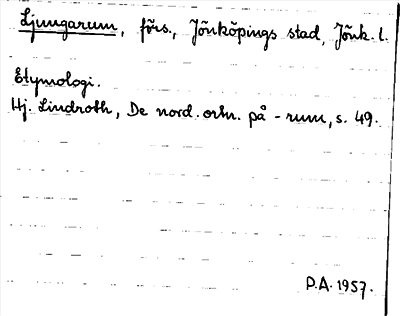 Ljungarum, förs., Jönköpings stad, Jönk. l.
Etymologi.
Hj. Lindroth, De nord. ortn. på -rum, s. 49.
P.A. 1957.